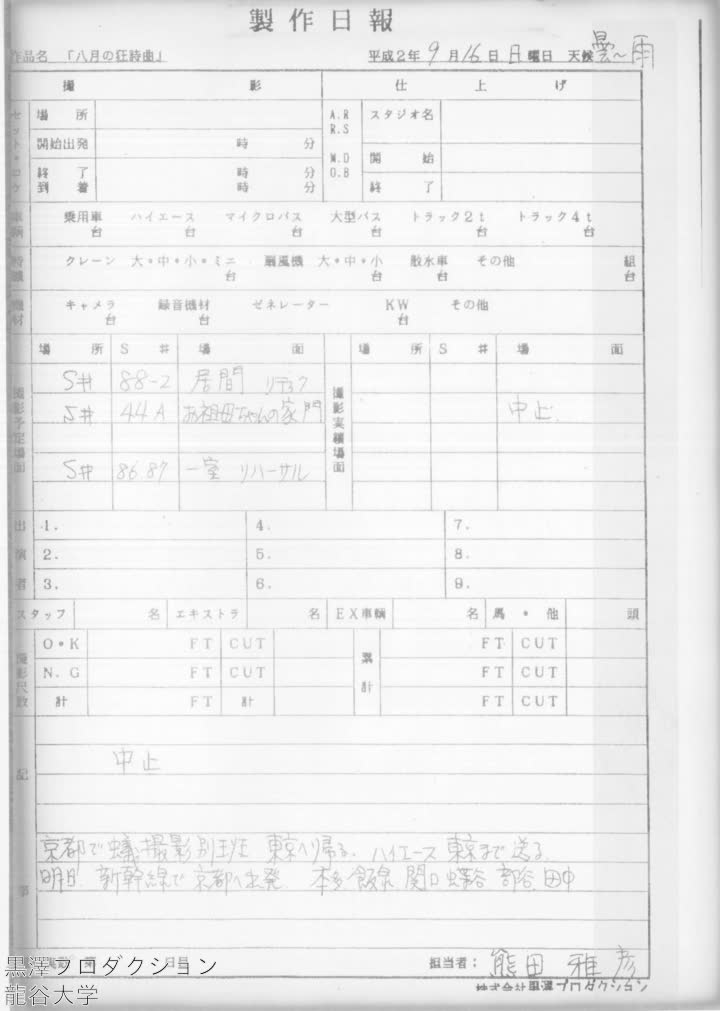 製作日報
作品名 「八月の狂詩曲」 平成2年9月16日日曜日 天候 曇〜雨
撮影 仕上げ
セット・ロケ 場所 A.R R.S スタジオ名
開始出発 時 分
終了 時 分 W.D O.B 開始
到着 時 分 終了
車輌 乗用車 台 ハイエース 台 マイクロバス 台 大型バス 台 トラック2t 台 トラック4t 台
特機 クレーン 大・中・小・ミニ 台 扇風機 大・中・小 台 散水車 台 その他 組 台
機材 キャメラ 台 録音機材 台 ゼネレーター KW 台 その他
撮影予定場面 場所 S# 場面 撮影実績場面 場所 S# 場面
S# 88-2 居間
S# 44A お祖母ちゃんの家 門 中止
S# 86.87 一室 リハーサル
出演者 1. 4. 7.
2. 5. 8.
3. 6. 9.
スタッフ 名 エキストラ 名 EX車輌 名 馬・他 頭
撮影尺数 O・K FT CUT 累計 FT CUT
N.G FT CUT FT CUT
計 FT 計 CUT FT CUT
記事
中止
京都で蟻撮影別班 東京へ帰る。ハイエース 東京まで送る
明日 新幹線で京都へ出発 本多 飯泉 関口 田中
日目 担当者: 熊田雅彦
株式会社黒澤プロダクション
黒澤プロダクション
龍谷大学